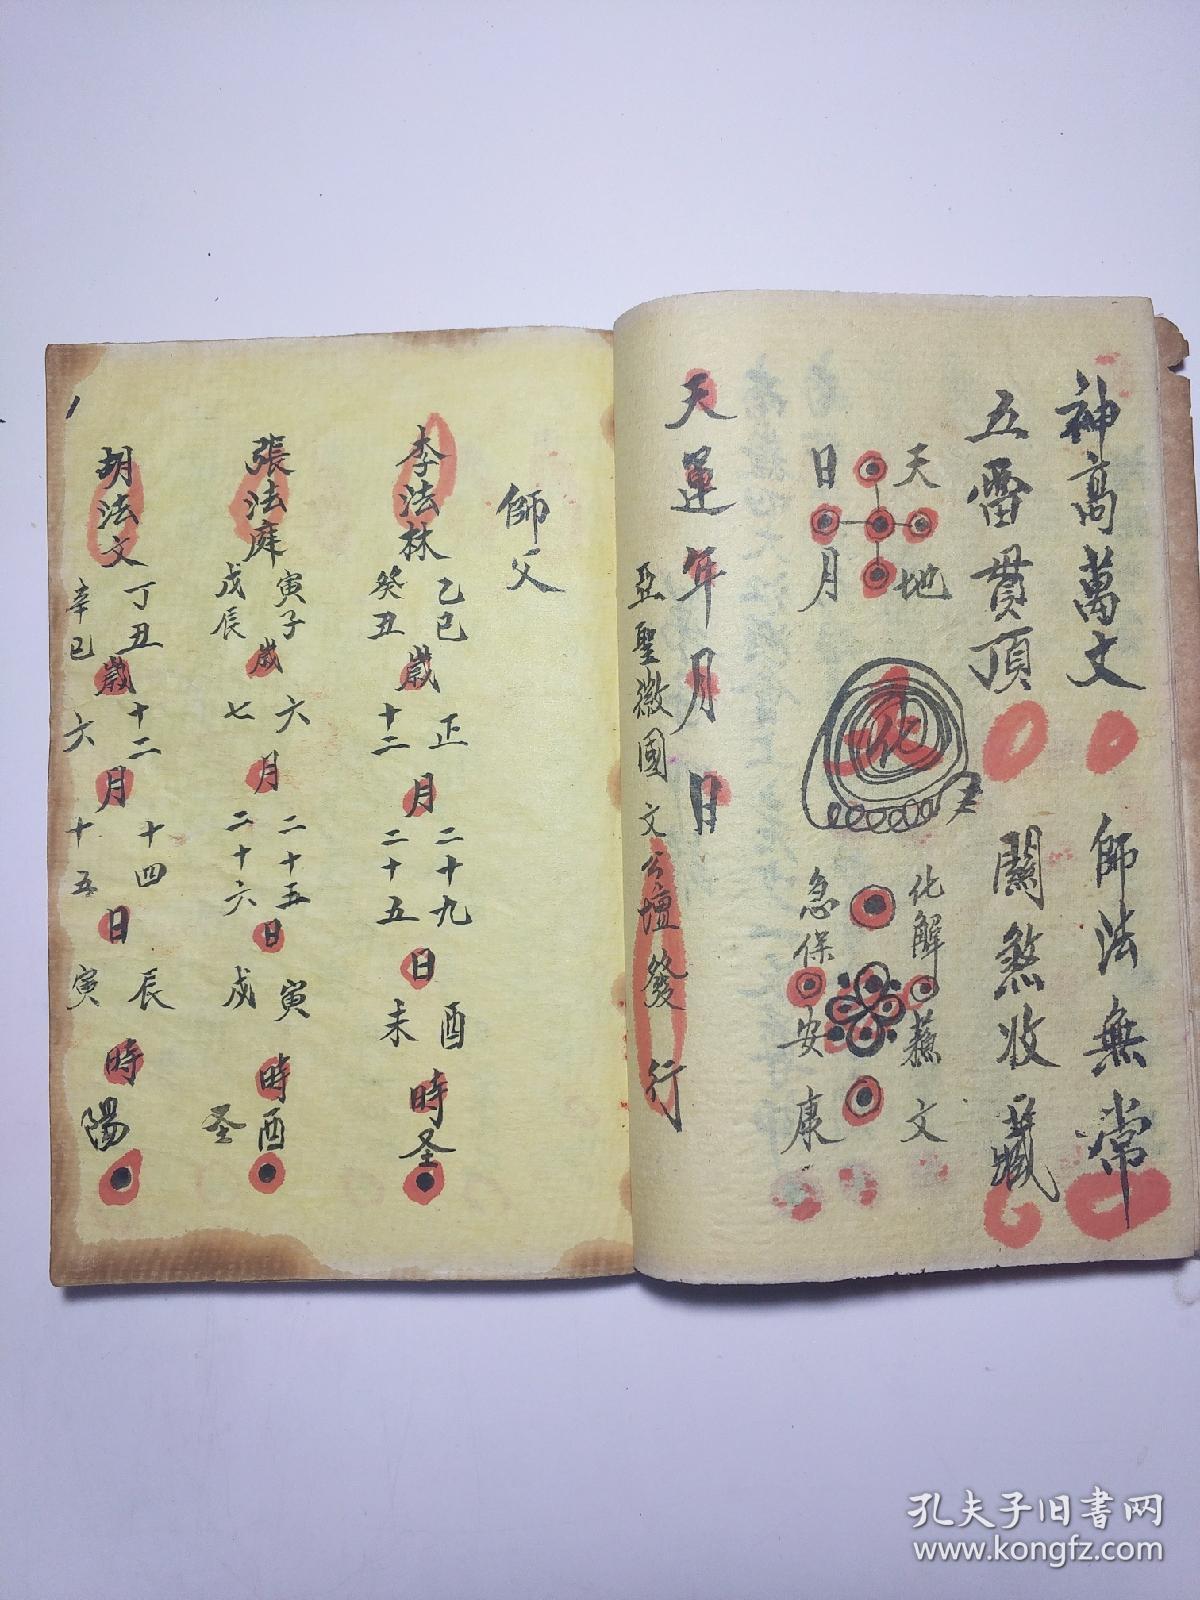 神高萬丈 師法無常
五雷貫頂 關煞收藏
天地
日月
化
化解蘇文
急保安康
天運年月日
亞聖徽國文公壇發行
師父
李法林 乙巳 癸丑 歲 正 十二 月 二十九 二十五 日 酉 未 時 圣
張法庭 寅子 戊辰 歲 六 七 月 二十五 二十六 日 寅 戌 時 酉 圣
胡法文 丁丑 辛巳 歲 十二 六 月 十四 十五 日 辰 寅 時 陽
孔夫子旧书网
www.kongfz.com